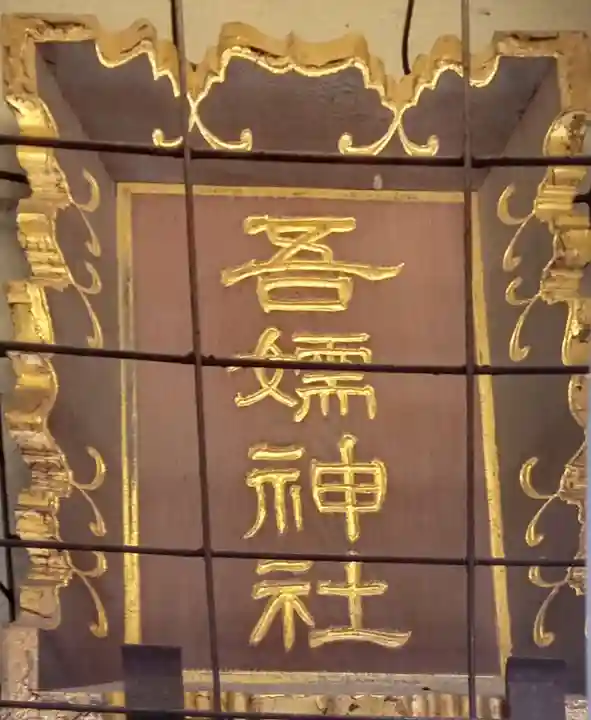 吾嬬神社